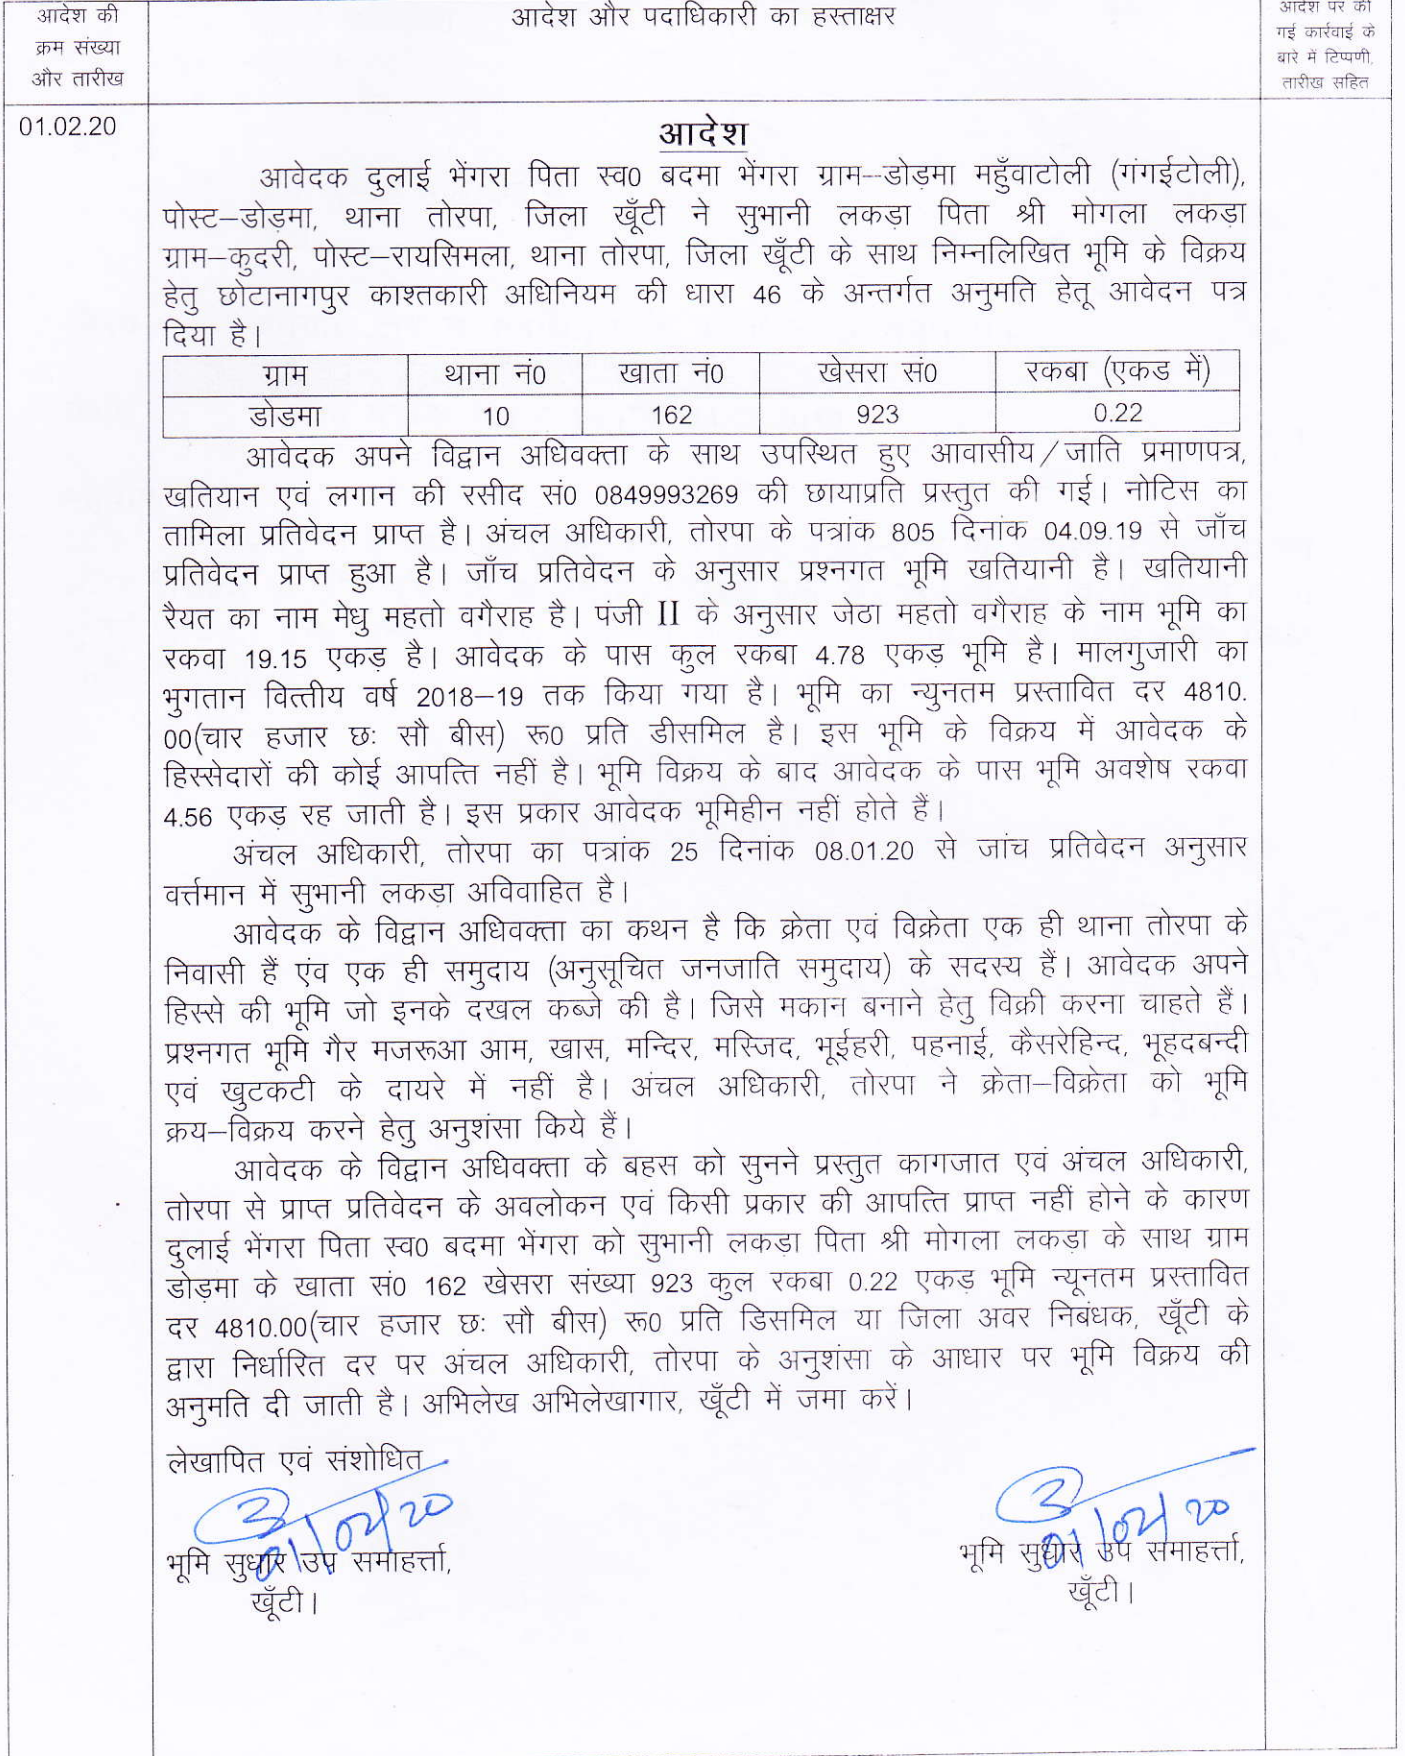 आदेश की
क्रम संख्या
और तारीख
आदेश और पदाधिकारी का हस्ताक्षर
आदेश पर की
गई कार्रवाई के
बारे में टिप्पणी,
तारीख सहित
01.02.20
आदेश
आवेदक दुलाई भेंगरा पिता स्व0 बदमा भेंगरा ग्राम–डोड़मा महुँवाटोली (गंगईटोली),
पोस्ट–डोड़मा, थाना तोरपा, जिला खूँटी ने सुभानी लकड़ा पिता श्री मोगला लकड़ा
ग्राम–कुदरी, पोस्ट–रायसिमला, थाना तोरपा, जिला खूँटी के साथ निम्नलिखित भूमि के विक्रय
हेतु छोटानागपुर काश्तकारी अधिनियम की धारा 46 के अन्तर्गत अनुमति हेतू आवेदन पत्र
दिया है।
ग्राम थाना नं0 खाता नं0 खेसरा सं0 रकबा (एकड में)
डोडमा 10 162 923 0.22
आवेदक अपने विद्वान अधिवक्ता के साथ उपस्थित हुए आवासीय/जाति प्रमाणपत्र,
खतियान एवं लगान की रसीद सं0 0849993269 की छायाप्रति प्रस्तुत की गई। नोटिस का
तामिला प्रतिवेदन प्राप्त है। अंचल अधिकारी, तोरपा के पत्रांक 805 दिनांक 04.09.19 से जाँच
प्रतिवेदन प्राप्त हुआ है। जाँच प्रतिवेदन के अनुसार प्रश्नगत भूमि खतियानी है। खतियानी
रैयत का नाम मेधु महतो वगैराह है। पंजी II के अनुसार जेठा महतो वगैराह के नाम भूमि का
रकवा 19.15 एकड़ है। आवेदक के पास कुल रकबा 4.78 एकड़ भूमि है। मालगुजारी का
भुगतान वित्तीय वर्ष 2018–19 तक किया गया है। भूमि का न्युनतम प्रस्तावित दर 4810.
00(चार हजार छः सौ बीस) रू0 प्रति डीसमिल है। इस भूमि के विक्रय में आवेदक के
हिस्सेदारों की कोई आपत्ति नहीं है। भूमि विक्रय के बाद आवेदक के पास भूमि अवशेष रकवा
4.56 एकड़ रह जाती है। इस प्रकार आवेदक भूमिहीन नहीं होते हैं।
अंचल अधिकारी, तोरपा का पत्रांक 25 दिनांक 08.01.20 से जांच प्रतिवेदन अनुसार
वर्त्तमान में सुभानी लकडा अविवाहित है।
आवेदक के विद्वान अधिवक्ता का कथन है कि क्रेता एवं विक्रेता एक ही थाना तोरपा के
निवासी हैं एंव एक ही समुदाय (अनुसूचित जनजाति समुदाय) के सदस्य हैं। आवेदक अपने
हिस्से की भूमि जो इनके दखल कब्जे की है। जिसे मकान बनाने हेतु विक्री करना चाहते हैं।
प्रश्नगत भूमि गैर मजरूआ आम, खास, मन्दिर, मस्जिद, भूईहरी, पहनाई, कैसरेहिन्द, भूहदबन्दी
एवं खुटकटी के दायरे में नहीं है। अंचल अधिकारी, तोरपा ने क्रेता–विक्रेता को भूमि
क्रय–विक्रय करने हेतु अनुशंसा किये हैं।
आवेदक के विद्वान अधिवक्ता के बहस को सुनने प्रस्तुत कागजात एवं अंचल अधिकारी,
तोरपा से प्राप्त प्रतिवेदन के अवलोकन एवं किसी प्रकार की आपत्ति प्राप्त नहीं होने के कारण
दुलाई भेंगरा पिता स्व0 बदमा भेंगरा को सुभानी लकड़ा पिता श्री मोगला लकड़ा के साथ ग्राम
डोड़मा के खाता सं0 162 खेसरा संख्या 923 कुल रकबा 0.22 एकड़ भूमि न्यूनतम प्रस्तावित
दर 4810.00(चार हजार छः सौ बीस) रू0 प्रति डिसमिल या जिला अवर निबंधक, खूँटी के
द्वारा निर्धारित दर पर अंचल अधिकारी, तोरपा के अनुशंसा के आधार पर भूमि विक्रय की
अनुमति दी जाती है। अभिलेख अभिलेखागार, खूँटी में जमा करें।
लेखापित एवं संशोधित
01/02/20
01/02/20
भूमि सुधार उप समाहर्त्ता,
खूँटी।
भूमि सुधार उप समाहर्त्ता,
खूँटी।